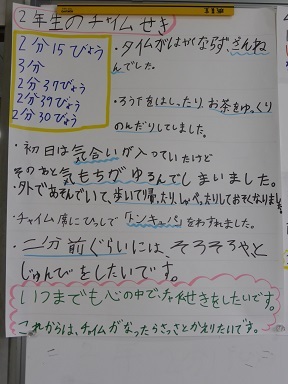 2年生のチャイムせき
2分15びょう
3分
2分37びょう
2分39びょう
2分30びょう
・タイムがはやくならず、ざんね
んでした。
・ろう下をはしったり、お茶をゆっくり
のんだりしてしました。
・初日は気合いが入っていたけど
そのあと気もちがゆるんでしまいました。
・外であそんでいて、歩いて帰ったり、しゃべったりしておそくなりました
・チャイム席にひっしで「トンキュパ」をわすれました。
・二分前ぐらいには、そろそろやと
じゅんびをしたいです。
いつまでも心の中でチャイムせきをしたいです。
これからは、チャイムがなったらさっさとかえりたいです。